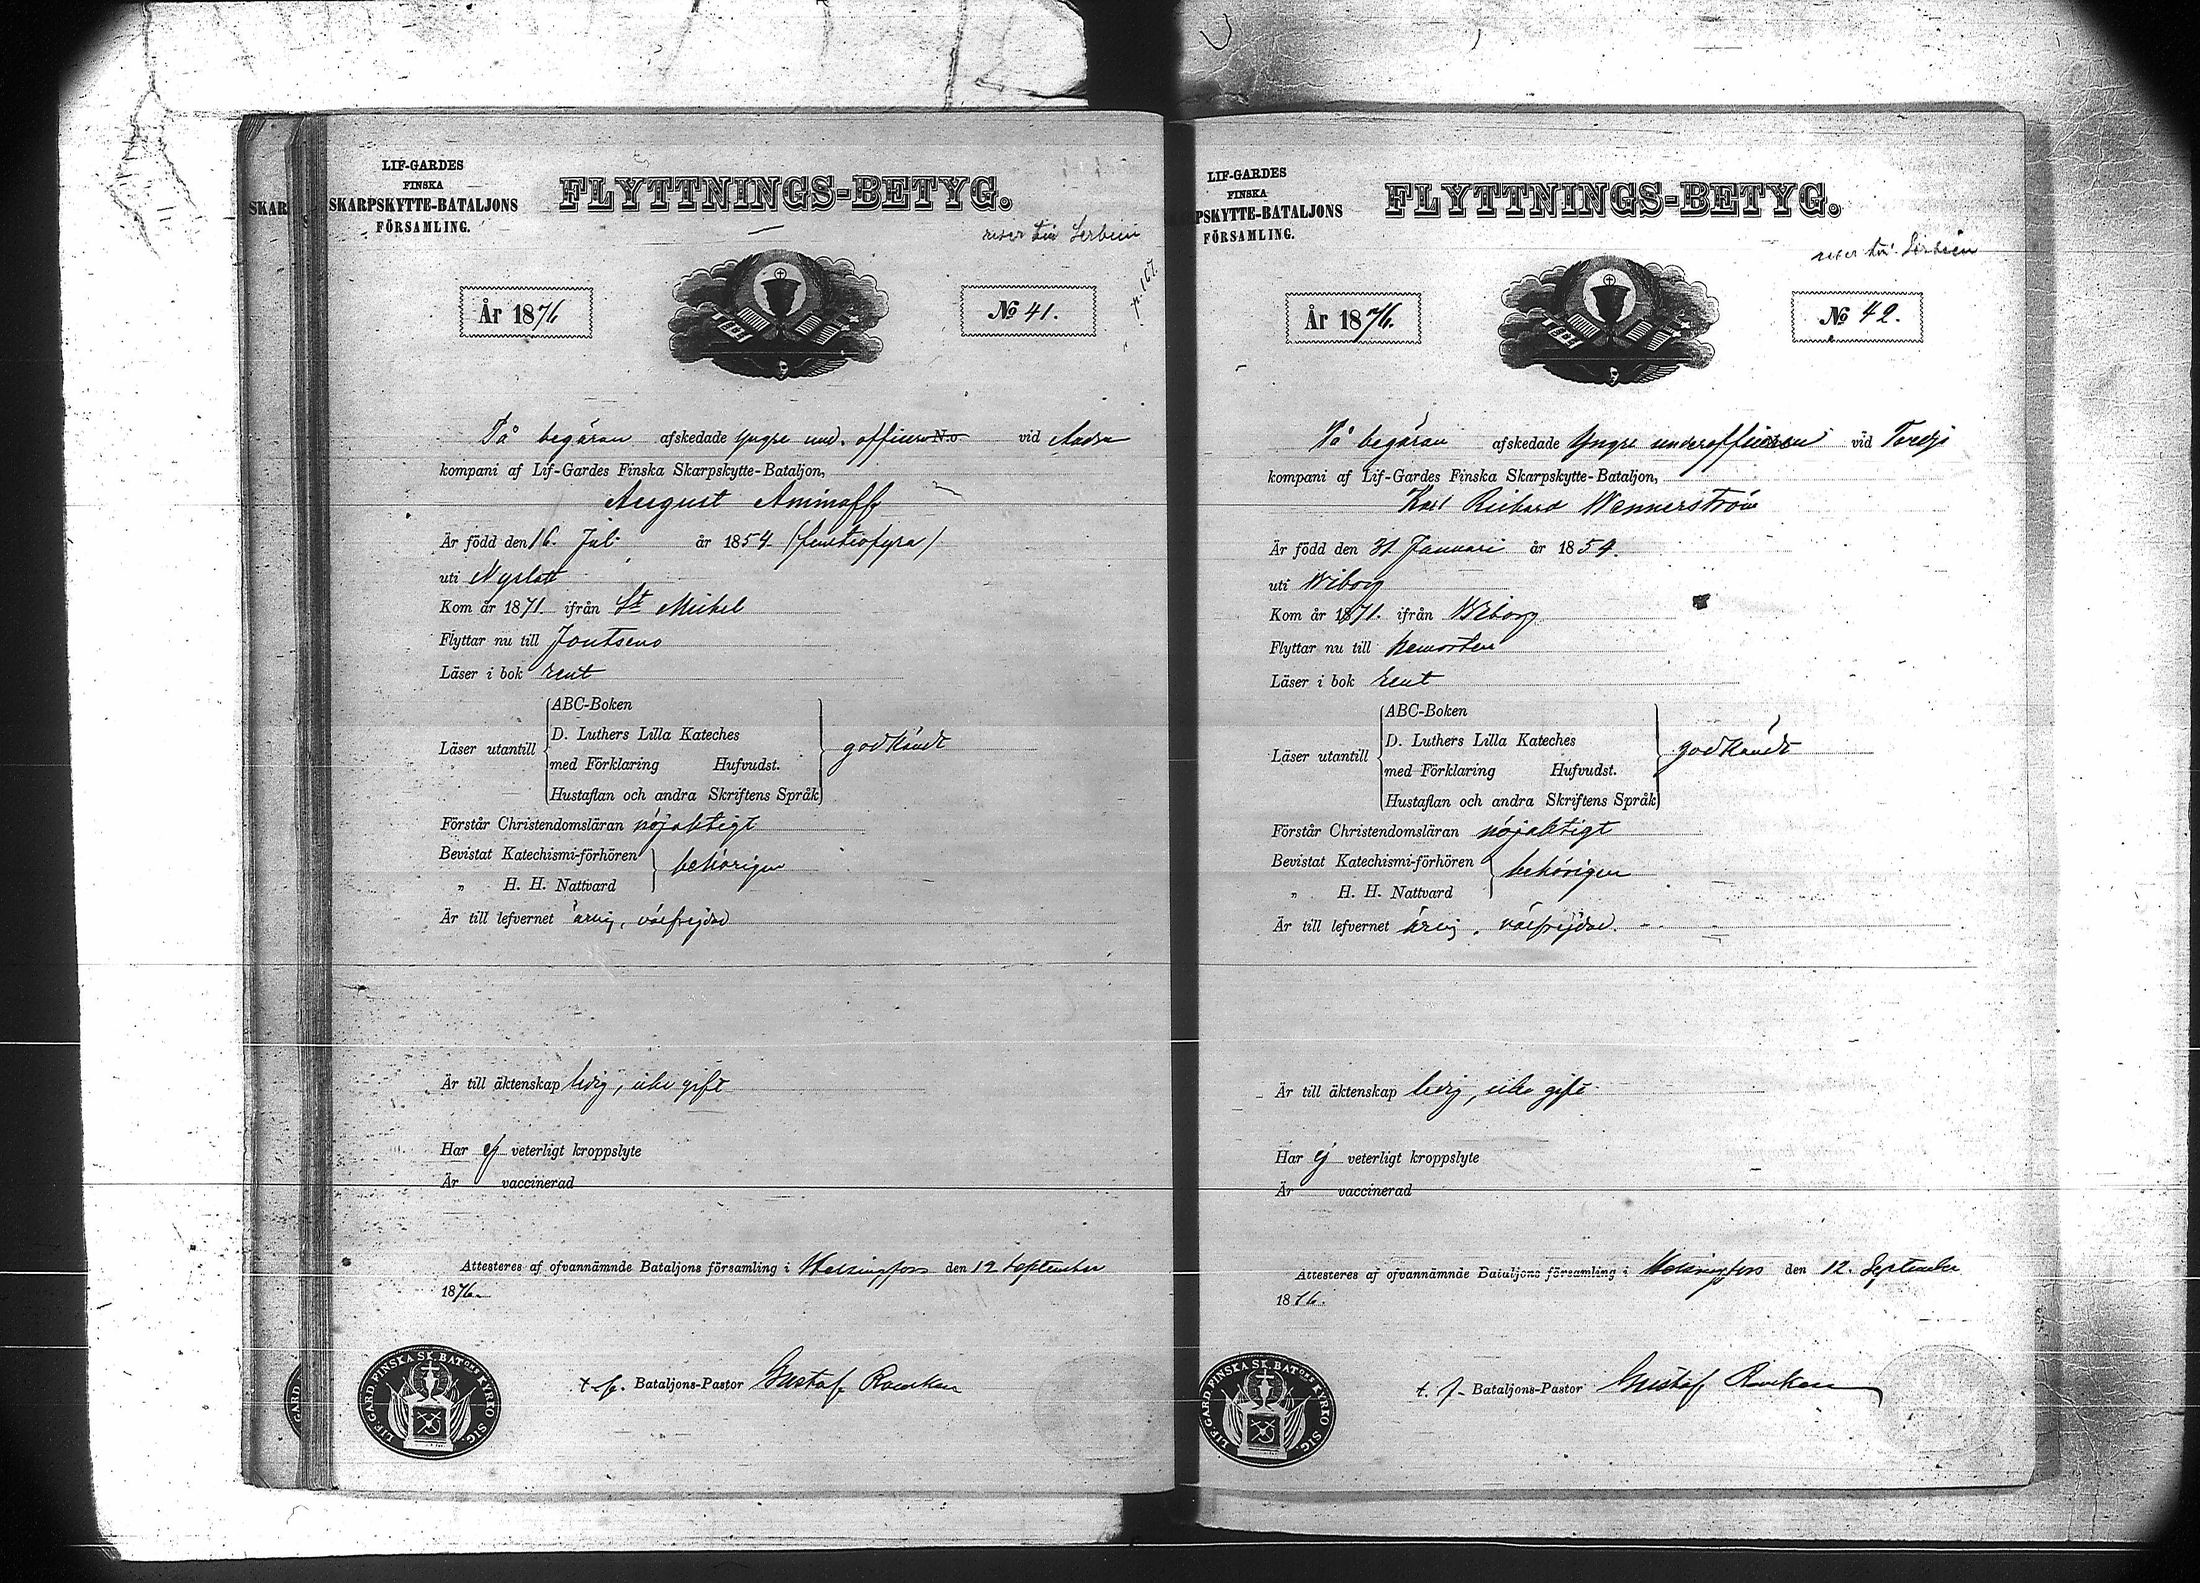 SKAR
LIF-GARDES
FINSKA
SKARPSKYTTE-BATALJONS
FÖRSAMLING.
FLYTTNINGS-BETYG.
reser till Serbien
p. 167.
År 1876
No 41.
På begäran afskedade yngre und. officer No vid Andra
kompani af Lif-Gardes Finska Skarpskytte-Bataljon,
August Aminoff
Är född den 16 Juli år 1854 (femtiofyra)
uti Nyslott
Kom år 1871 ifrån St Michel
Flyttar nu till Joutseno
Läser i bok rent
Läser utantill
ABC-Boken
D. Luthers Lilla Kateches
med Förklaring Hufvudst.
Hustaflan och andra Skriftens Språk
godkändt
Förstår Christendomsläran nöjaktigt
Bevistat Katechismi-förhören
„ H. H. Nattvard
behörigen
Är till lefvernet ärlig, välfrejdad
Är till äktenskap ledig, icke gift
Har ej veterligt kroppslyte
Är vaccinerad
Attesteres af ofvannämnde Bataljons församling i Helsingfors den 12 September
1876.
t. f. Bataljons-Pastor Gustaf
LIF. GARD FINSKA SK. BAT:ONS KYRKO SIG.
LIF-GARDES
FINSKA
PSKYTTE-BATALJONS
FÖRSAMLING.
FLYTTNINGS-BETYG.
reser till Serbien
År 1876.
No 42.
På begäran afskedade Yngre underofficeren vid Tredje
kompani af Lif-Gardes Finska Skarpskytte-Bataljon,
Karl Richard Wennerström
Är född den 31 Januari år 1854.
uti Wiborg
Kom år 1871. ifrån Wiborg
Flyttar nu till hemorten
Läser i bok rent
Läser utantill
ABC-Boken
D. Luthers Lilla Kateches
med Förklaring Hufvudst.
Hustaflan och andra Skriftens Språk
godkändt
Förstår Christendomsläran nöjaktigt
Bevistat Katechismi-förhören
„ H. H. Nattvard
behörigen
Är till lefvernet ärlig, välfrejdad.
Är till äktenskap ledig, icke gift
Har ej veterligt kroppslyte
Är vaccinerad
Attesteres af ofvannämnde Bataljons församling i Helsingfors den 12. September
1876.
t. f. Bataljons-Pastor Gustaf
LIF. GARD FINSKA SK. BAT:ONS KYRKO SIG.